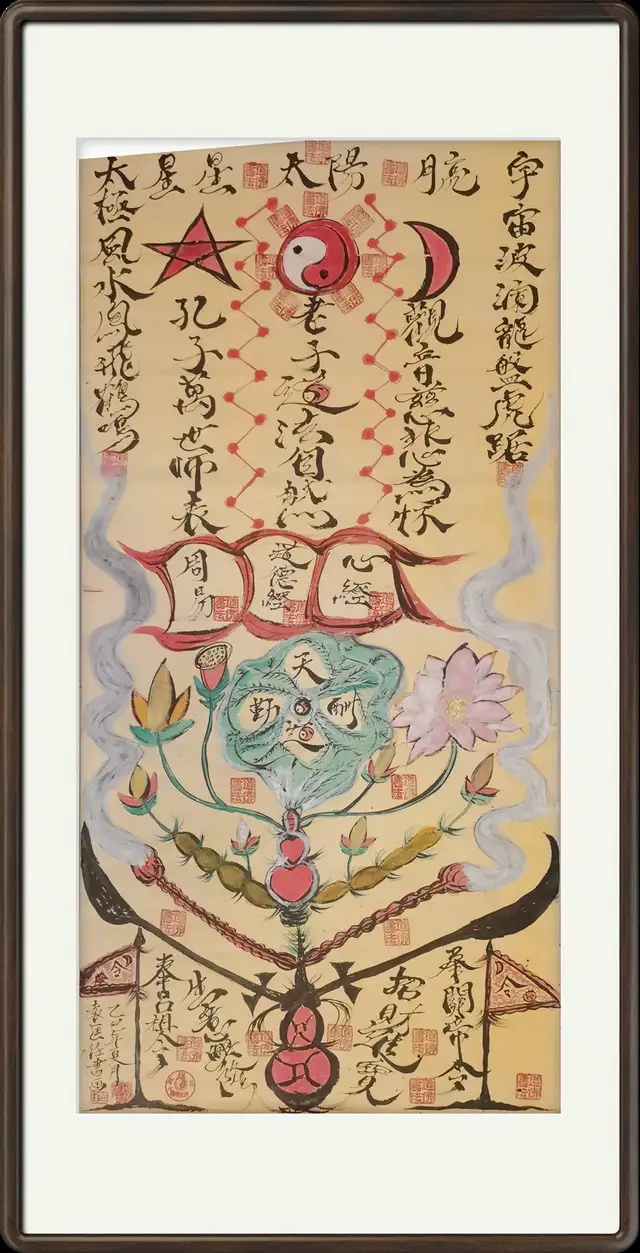 星星 太陽 月亮
宇宙波瀾龍盤虎踞
觀音慈悲心為懷
老子道法自然
孔子萬世師表
太極風水鳳飛鶴鳴
心經
道德經
周易
天道酬勤
令
奉關帝令
招財進寶
奉呂祖令
令
乙巳年